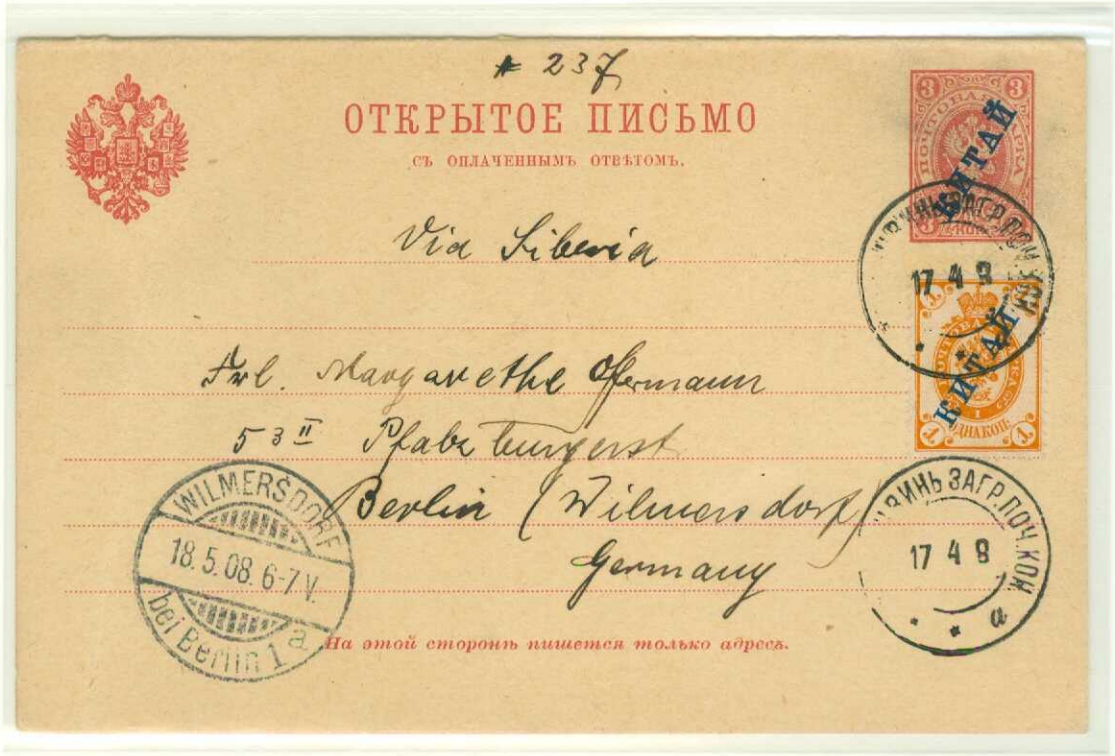 * 237
ОТКРЫТОЕ ПИСЬМО
СЪ ОПЛАЧЕННЫМЪ ОТВѢТОМЪ.
3 3
ПОЧТОВАЯ МАРКА
КИТАЙ
3 КОП. 3
Via Siberia
ЗАГР. ПОЧ. КОН
17 4 8
1 1
КИТАЙ
1 ОДНА КОП. 1
Frl. Margarethe Offermann
53 II Pfalzburgerst
Berlin (Wilmersdorf)
Germany
WILMERSDORF
18.5.08. 6-7V.
bei Berlin 1 a
ЗАГР. ПОЧ. КОН
17 4 8
а
На этой сторонѣ пишется только адресъ.